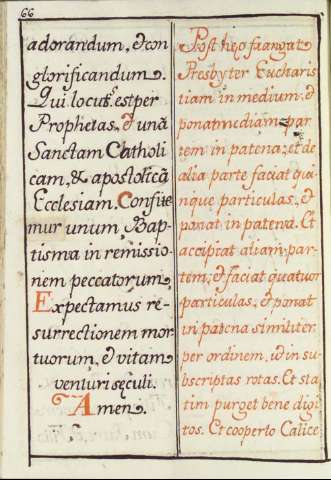 66
adorandum, & con
glorificandum.
Qui locutꝰ est per
Prophetas. & unã
Sanctam Catholi
cam, & apostolicã
Ecclesiam. Confite
mur unum Bap-
tisma in remissio
nem peccatorum.
Expectamus re-
surrectionem mor
tuorum, & vitam
venturi sęculi.
Amen.
Post hęc frangat
Presbyter Eucharis
tiam in medium, &
ponat mediam par
tem in patena; et de
alia parte faciat quin
que particulas, &
ponat in patena. Et
accipiat aliam par-
tem, & faciat quatuor
particulas, & ponat
in patena similiter
per ordinem, ut in su
bscriptas rotas. Et sta
tim purget bene digi
tos. Et cooperto Calice